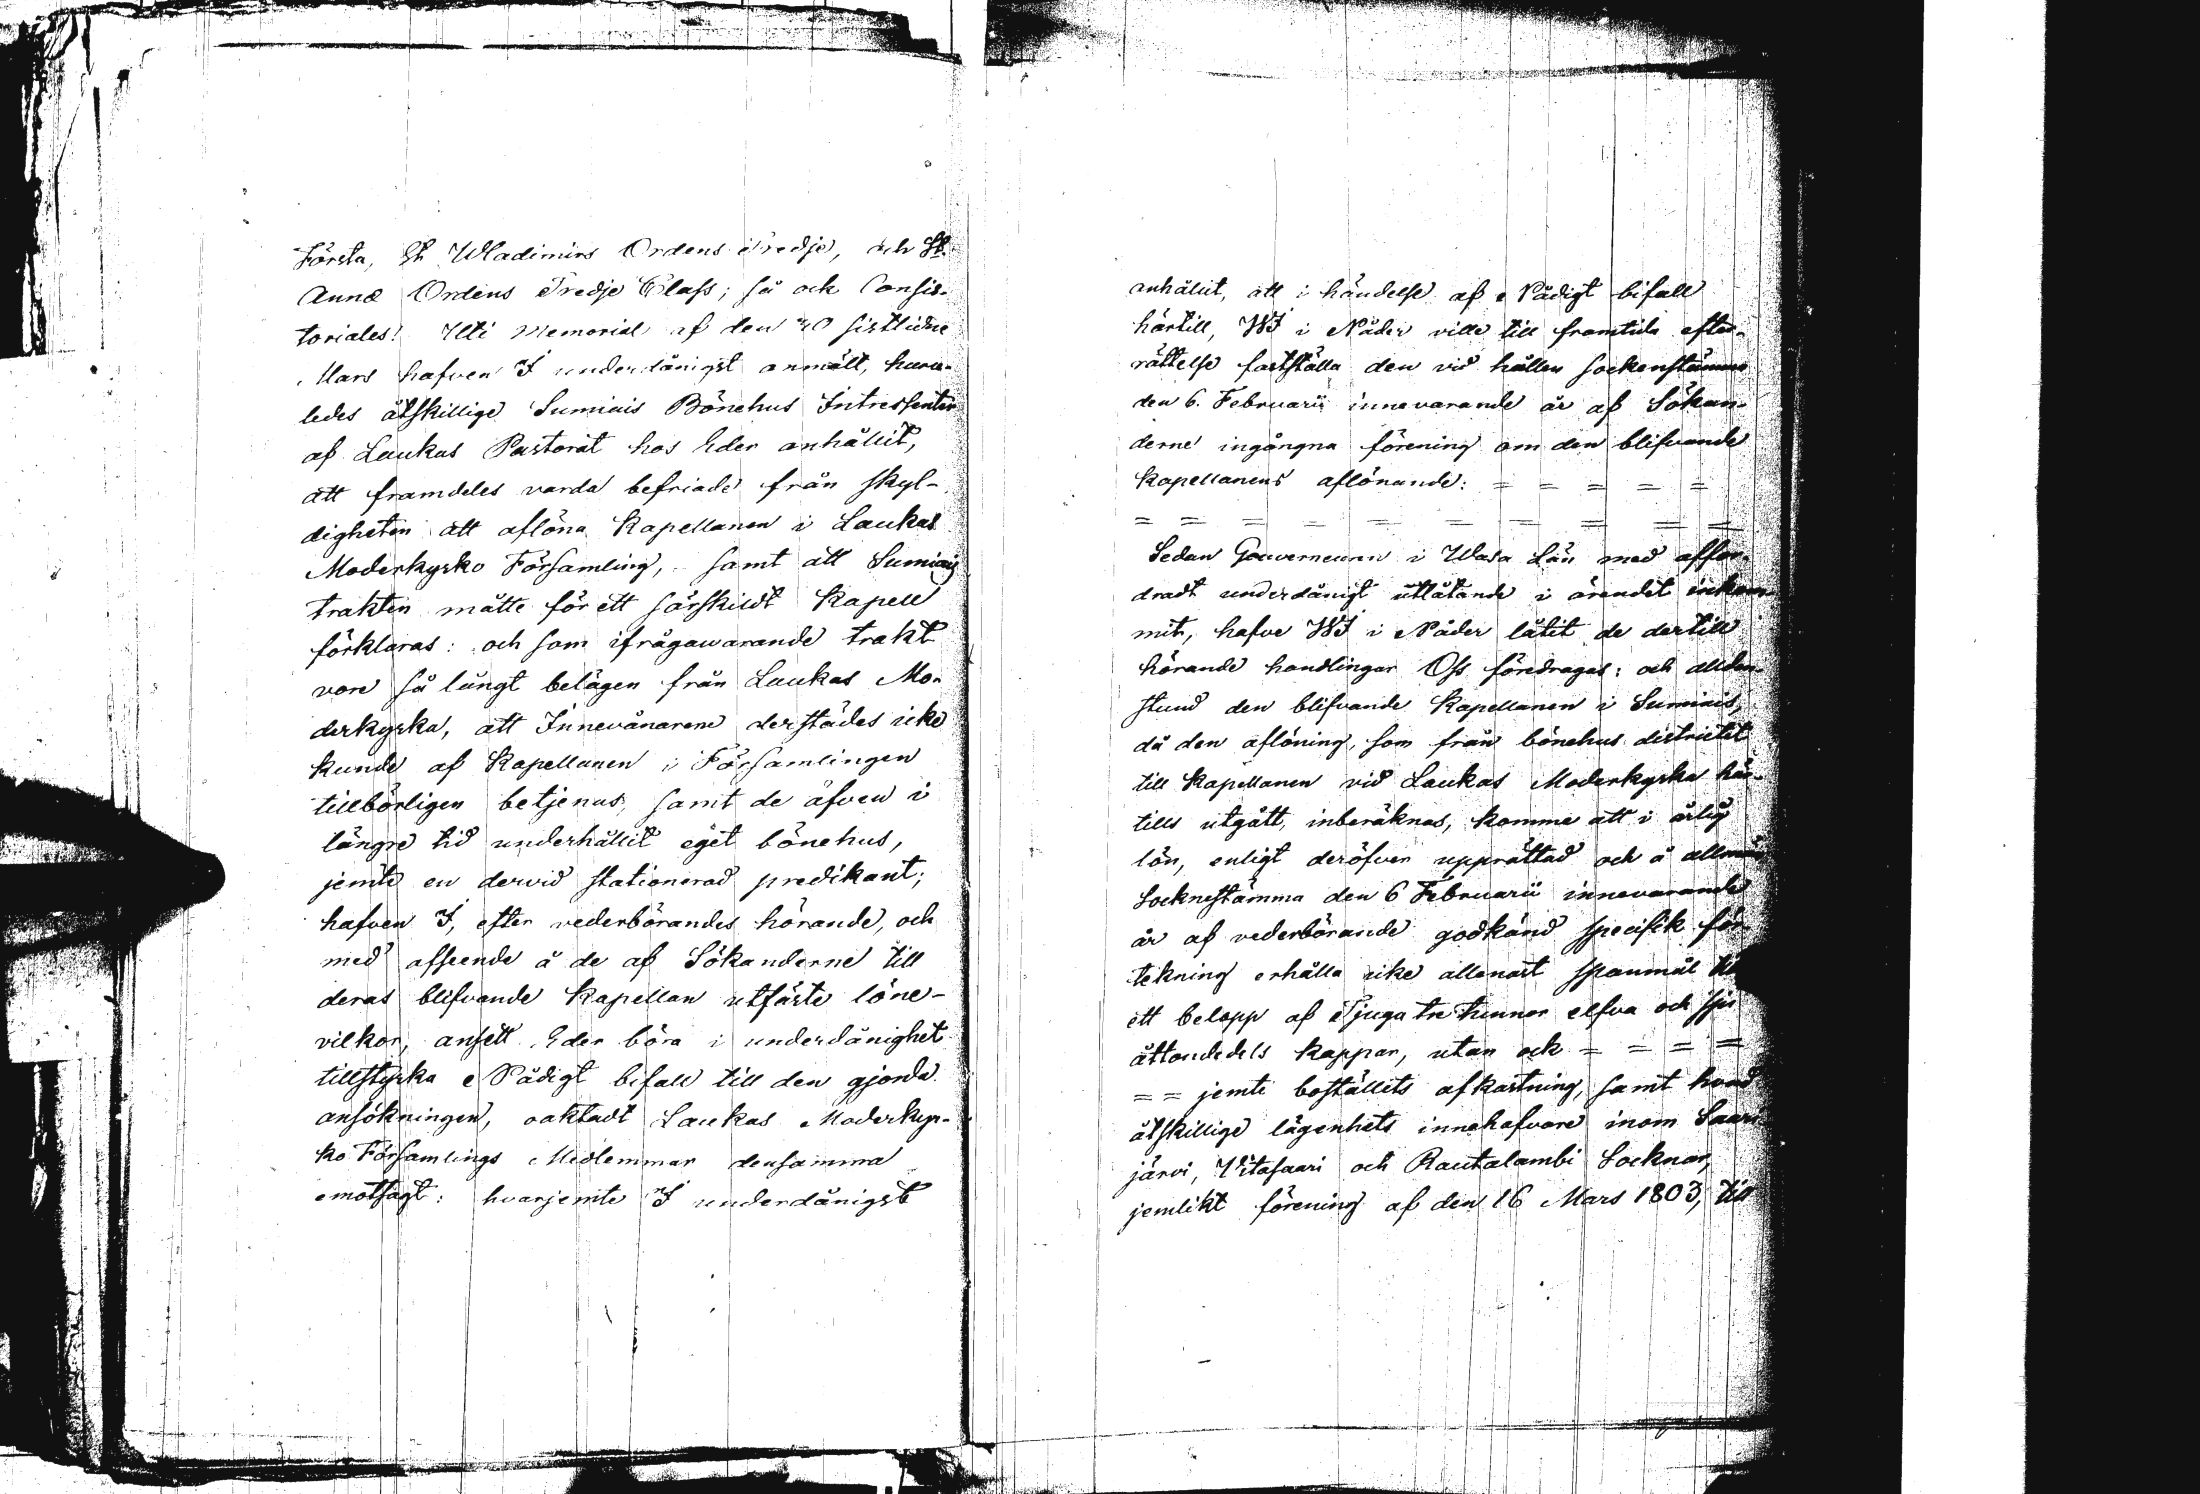 Första, St Wladimirs Ordens Tredje, och St.
Annæ Ordens Tredje Class; så ock Consis-
toriales! Uti Memorial af den 20 sistlidne
Mars hafven I underdånigst anmält, huru-
ledes åtskillige Sumiais Bönehus Intressenter
af Laukas Pastorat hos Eder anhållit,
att framdeles varda befriade från skyl-
digheten att aflöna Kapellanen i Laukas
Moderkyrko Församling, samt att Sumiais
trakten måtte för ett särskildt Kapell
förklaras: och som ifrågawarande trakt
vore så långt belägen från Laukas Mo-
derkyrka, att Innevånarene derstädes icke
kunde af Kapellanen i Församlingen
tillbörligen betjenas, samt de äfven i
längre tid underhållit eget bönehus,
jemte en dervid stationerad predikant;
hafven I, efter vederbörandes hörande, och
med afseende å de af Sökanderne till
deras blifvande Kapellan utfäste löne-
vilkor, ansett Eder böra i underdånighet
tillstyrka Nådigt bifall till den gjorda
ansökningen, oaktadt Laukas Moderkyr-
ko Församlings Medlemmar densamma
emotsagt: hvarjemte I underdånigst
anhållit, att i händelse af Nådigt bifall
härtill, WI i Nåder ville till framtida efter-
rättelse fastställa den vid hållen sockenstämma
den 6. Februarii innevarande år af Sökan-
derne ingångna förening om den blifvande
Kapellanens aflönande: = = = = =
= = = = = = = = = =
Sedan Gouverneuren i Wasa Län med affor-
dradt underdånigt utlåtande i ärendet inkom-
mit, hafve WI i Nåder låtit de dertill
hörande handlingar Oss föredragas: och allden-
stund den blifvande Kapellanen i Sumiais,
då den aflöning, som från bönehus districtet
till Kapellanen vid Laukas Moderkyrka här-
tills utgått, inberäknas, komme att i årlig
lön, enligt deröfver upprättad och å allmän
Socknestämma den 6 Februarii innevarande
år af vederbörande godkänd specifik för-
tekning erhålla icke allenast spanmål till
ett belopp af Tjugutre tunnor elfva och sju
åttondedels kappar, utan ock = = = =
= = jemte boställets afkastning, samt hvad
åtskillige lägenhets innehafvare inom Saari-
järvi, Vitasaari och Rautalambi Socknar,
jemlikt förening af den 16 Mars 1803, till